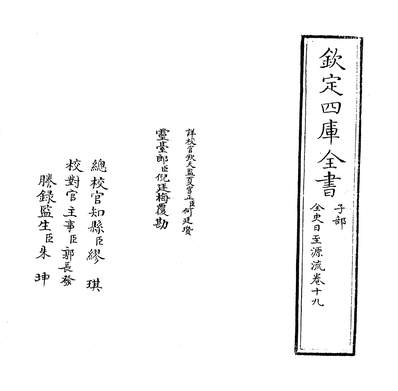 欽定四庫全書
子部
全史日至源流卷十九
詳校官欽天監夏官正臣何廷瓚
靈臺郎臣倪廷梅覆勘
總校官知縣臣繆琪
校對官主事臣郭長發
謄錄監生臣朱坤